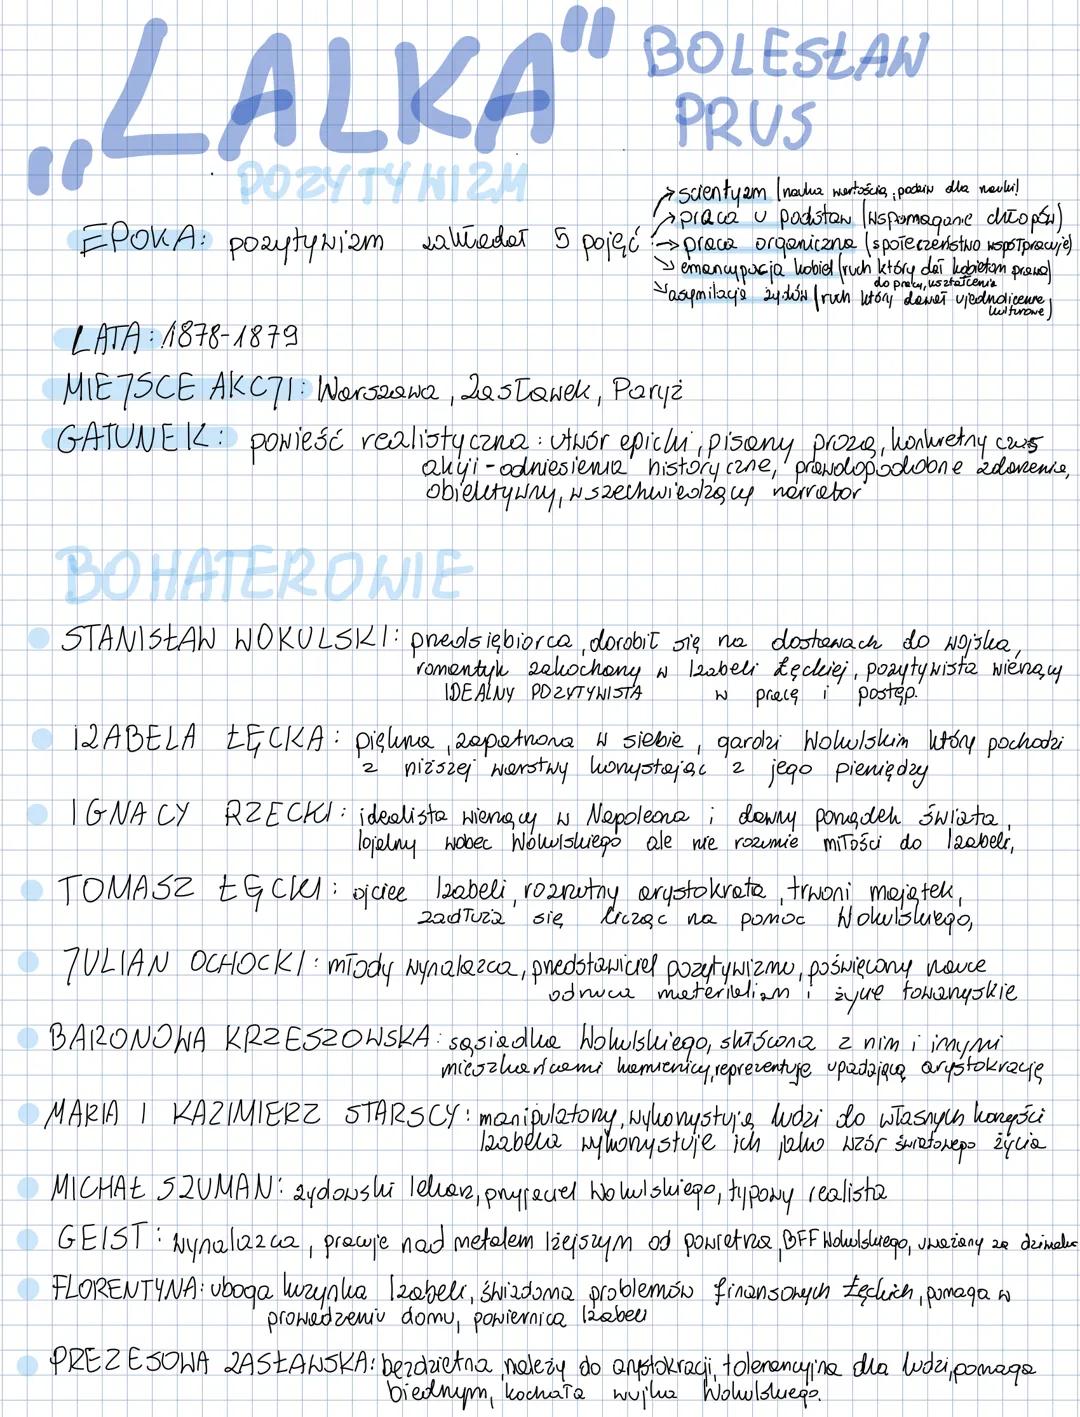 „LALKA" BOLESŁAW
PRUS
POZYTYWIZM
EPOKA: pozytywizm zakładał 5 pojęć
→ scientyzm (nauka wartością, podziw dla nauki)
→ praca u podstaw (wspomaganie chłopów)
→ praca organiczna (społeczeństwo współpracuje)
→ emancypacja kobiet (ruch który dał kobietom prawa
do pracy, kształcenia)
→ asymilacja żydów (ruch który dawał ujednolicenie
kulturowe)
LATA: 1878-1879
MIEJSCE AKCJI: Warszawa, Zasławek, Paryż
GATUNEK: powieść realistyczna: utwór epicki, pisany prozą, konkretny czas
akcji - odniesienia historyczne, prawdopodobne zdarzenia,
obiektywny, wszechwiedzący narrator
BOHATEROWIE
STANISŁAW WOKULSKI: przedsiębiorca, dorobił się na dostawach do wojska,
romantyk zakochany w Izabeli Łęckiej, pozytywista wierzący
IDEALNY POZYTYWISTA w pracę i postęp.
IZABELA ŁĘCKA: piękna, zapatrzona w siebie, gardzi Wokulskim który pochodzi
z niższej warstwy korzystając z jego pieniędzy
IGNACY RZECKI: idealista wierzący w Napoleona i dawny porządek świata,
lojalny wobec Wokulskiego ale nie rozumie miłości do Izabeli,
TOMASZ ŁĘCKI: ojciec Izabeli, rozrzutny arystokrata, trwoni majątek,
zadłuża się licząc na pomoc Wokulskiego,
JULIAN OCHOCKI: młody wynalazca, przedstawiciel pozytywizmu, poświęcony nauce
odrzuca materializm i życie towarzyskie
BARONOWA KRZESZOWSKA: sąsiadka Wokulskiego, skłócona z nim i innymi
mieszkańcami kamienicy, reprezentuje upadającą arystokrację
MARIA I KAZIMIERZ STARSCY: manipulatorzy, wykorzystują ludzi do własnych korzyści
Izabela wykorzystuje ich jako wzór światowego życia
MICHAŁ SZUMAN: żydowski lekarz, przyjaciel Wokulskiego, typowy realista
GEIST: wynalazca, pracuje nad metalem lżejszym od powietrza, BFF Wokulskiego, uważany za dziwaka
FLORENTYNA: uboga kuzynka Izabeli, świadoma problemów finansowych Łęckich, pomaga w
prowadzeniu domu, powiernica Izabeli
PREZESOWA ZASŁAWSKA: bezdzietna, należy do arystokracji, tolerancyjna dla ludzi, pomaga
biednym, kochała wujka Wokulskiego.